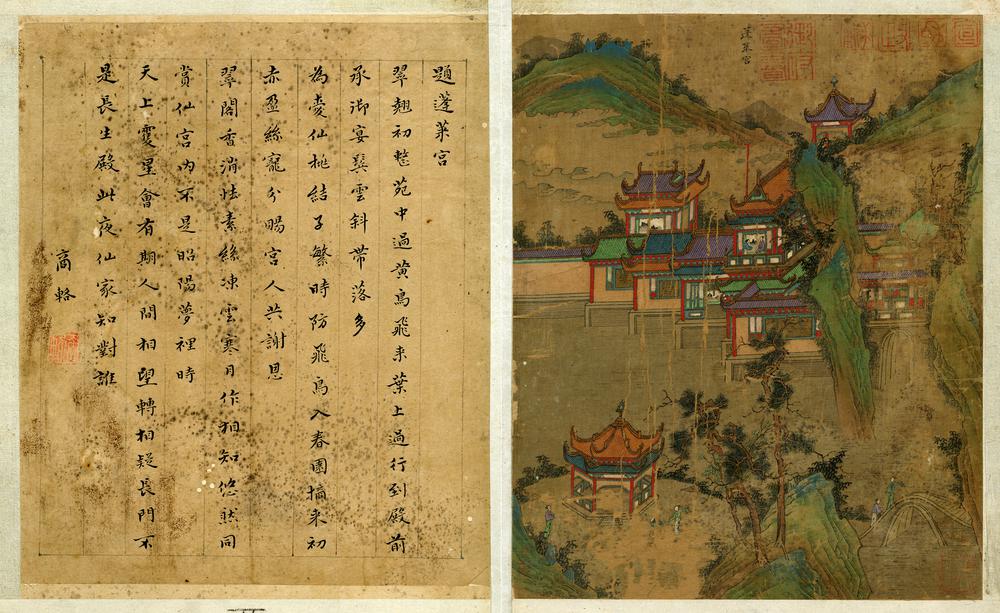 題蓬萊宮
翠翹初整苑中過黃鳥飛來葉上過行到殿前
承御宴鬂雲斜帶落多
為愛仙桃結子繁時防飛鳥入春園摘來初
赤盈絲寵分賜宮人共謝恩
翠閣香消怯素絲凍雲寒月作相知悠然同
賞仙宮內不是昭陽夢裡時
天上雙星會有期人間相望轉相疑長門不
是長生殿此夜仙家知對誰
商輅
蓬萊宮